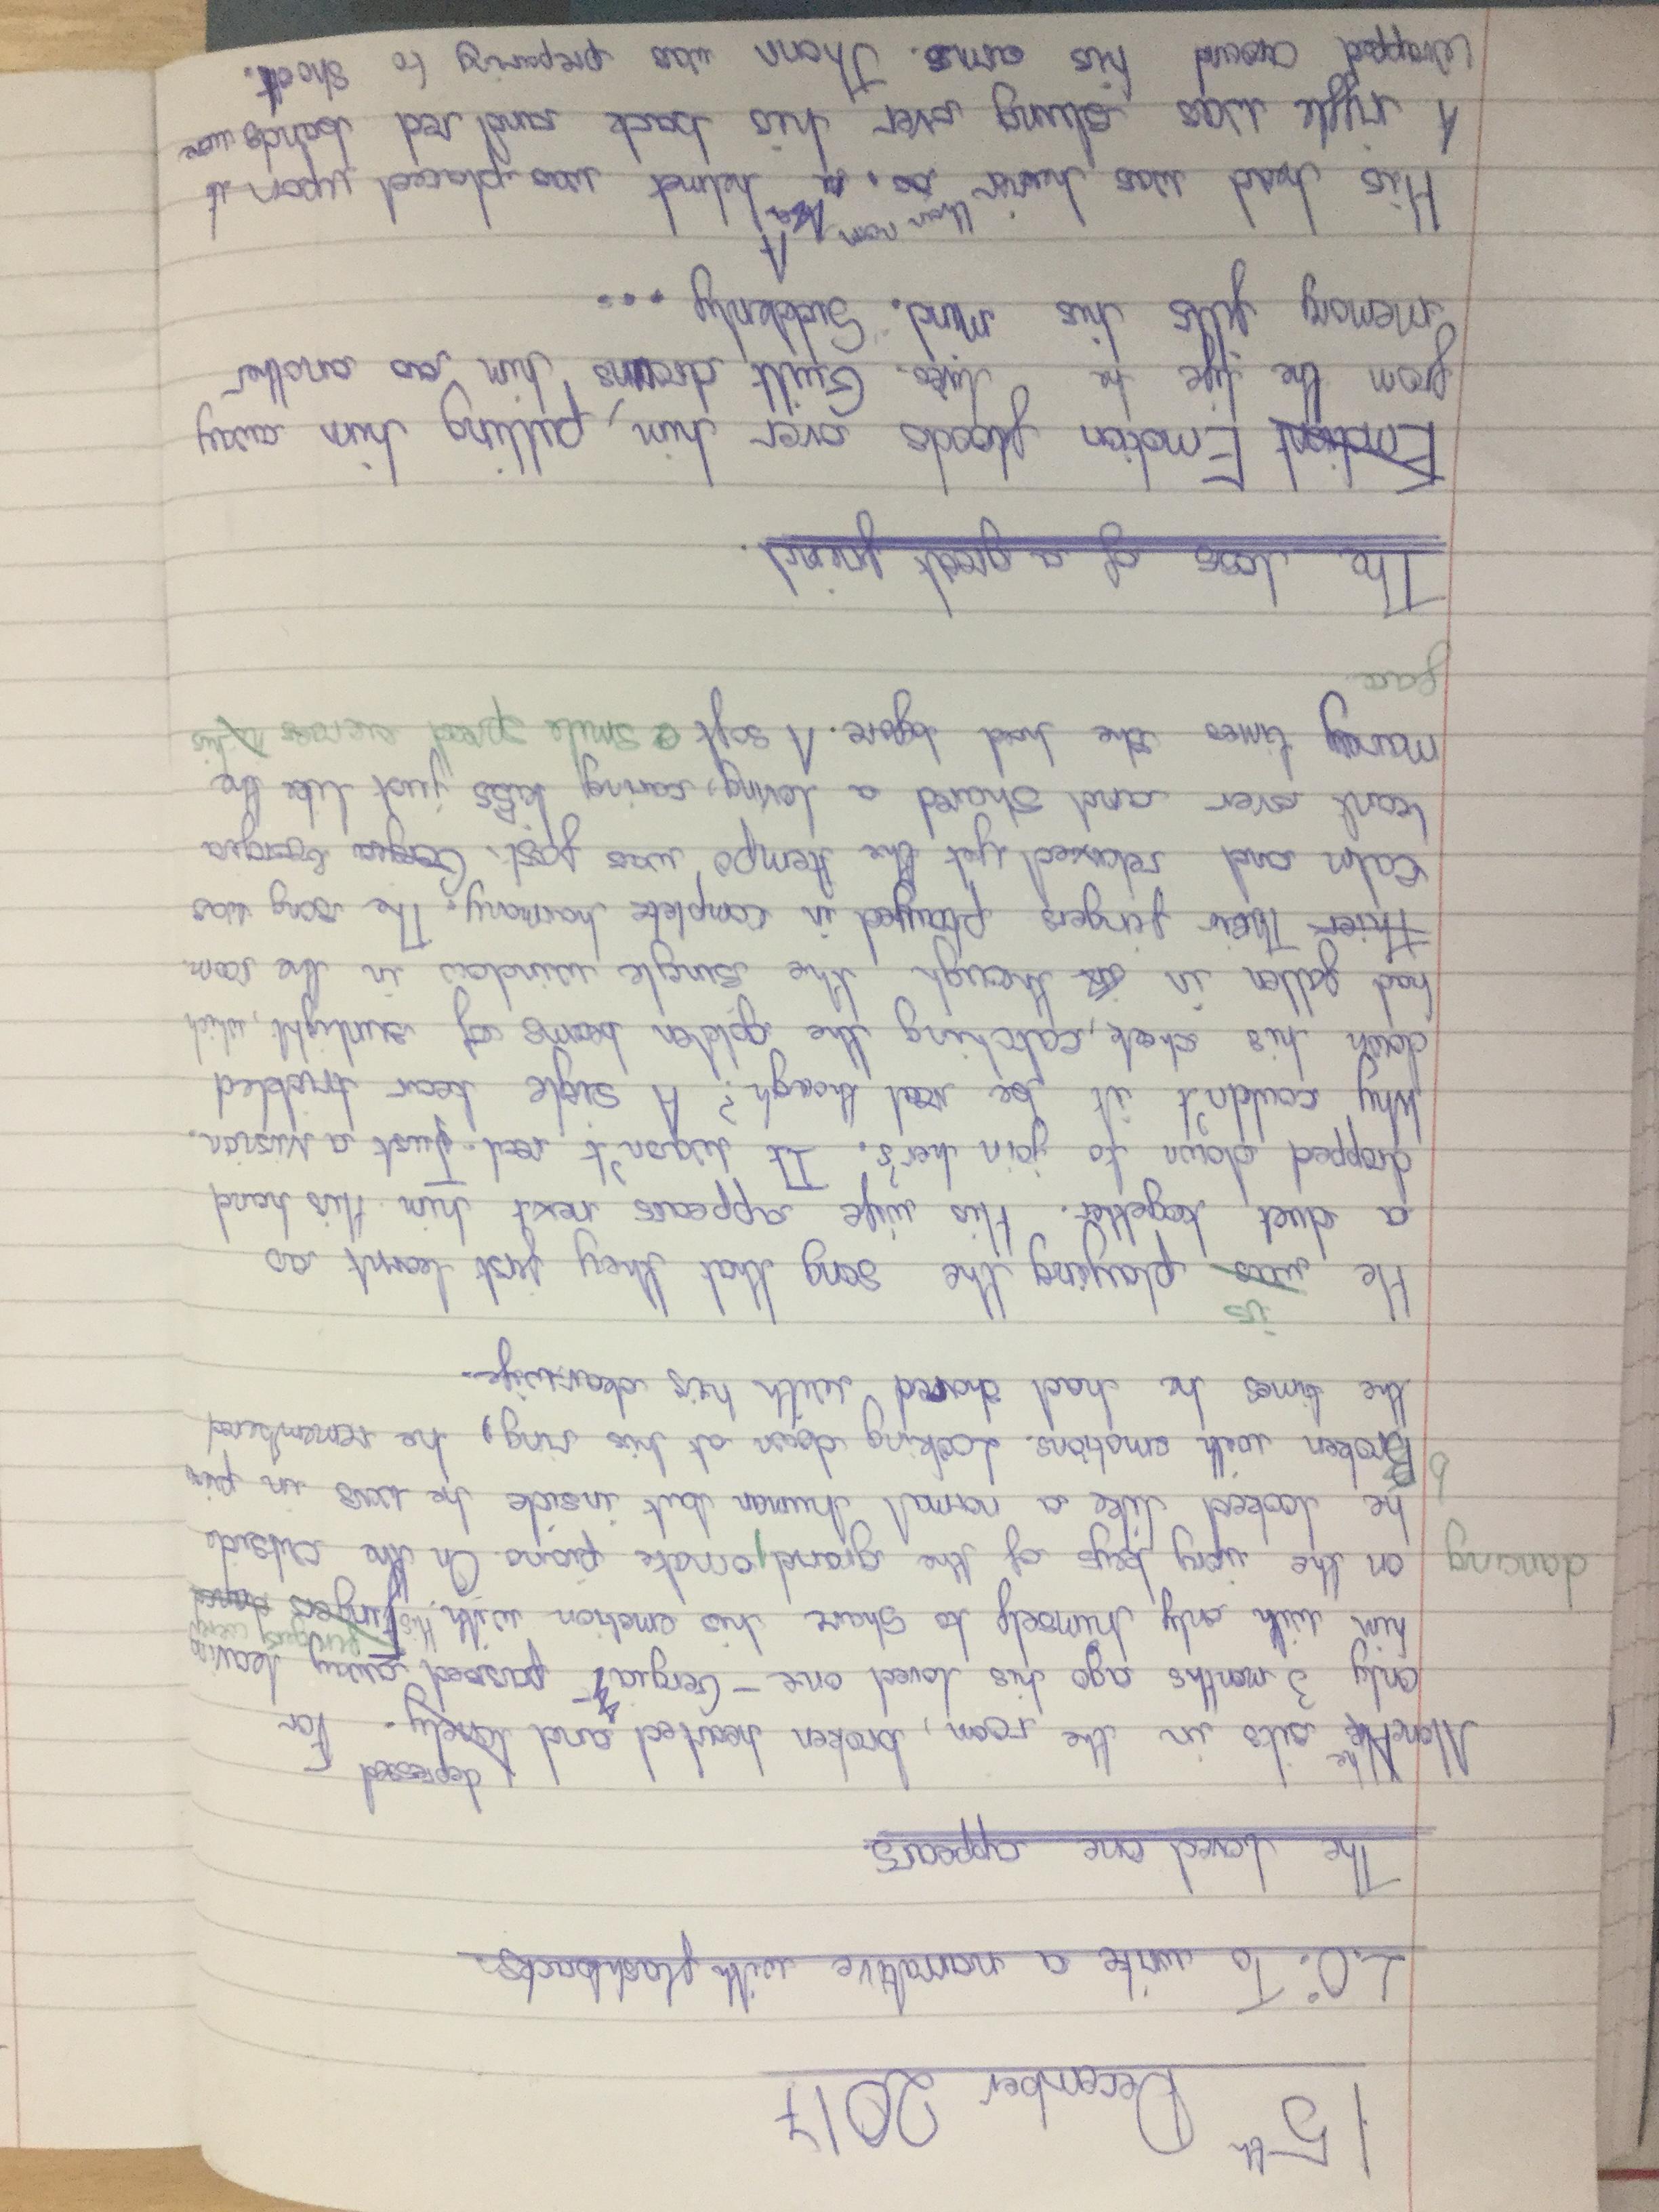 15th December 2017
L.O: To write a narrative with flashbacks.
The Loved one appears.
depressed
Alone, He sits in the room, broken hearted and lonely. For
only 3 months ago his loved one - Gergia - passed away leaving
him with only himself to share his emotion with. His fingers were
dancing on the ivory keys of the grand, ornate piano. On the outside
he looked like a normal human but inside he was in pain
b Broken with emotions. Looking down at his ring, he remembered
the times he had shared with his dear wife.
is
He was playing the song that they first learnt as
a duet together. His wife appears next him. His hand
dropped down to join her's. It wasn't real. Just a vision.
Why couldn't it be real though? A sigle tear trickled
down his cheek, catching the golden beams of sunlight, which
had fallen in through the single window in the room.
Thier Their fingers played in complete harmony. The song was
calm and relaxed yet the tempo was fast. Gergia Georgia
leant over and shared a loving, caring kiss just like the
many times she had before. A soft smile spread across his
face
The loss of a great friend.
Emotion floods over him, pulling him away
from the life he lives. Guilt drowns him as another
memory fills his mind. Suddenly ...
His head was heavier than norm as a helmet was placed upon it
A rifle was slung over his back and red bands were
wrapped around his arms. Thann was preparing to shoot.